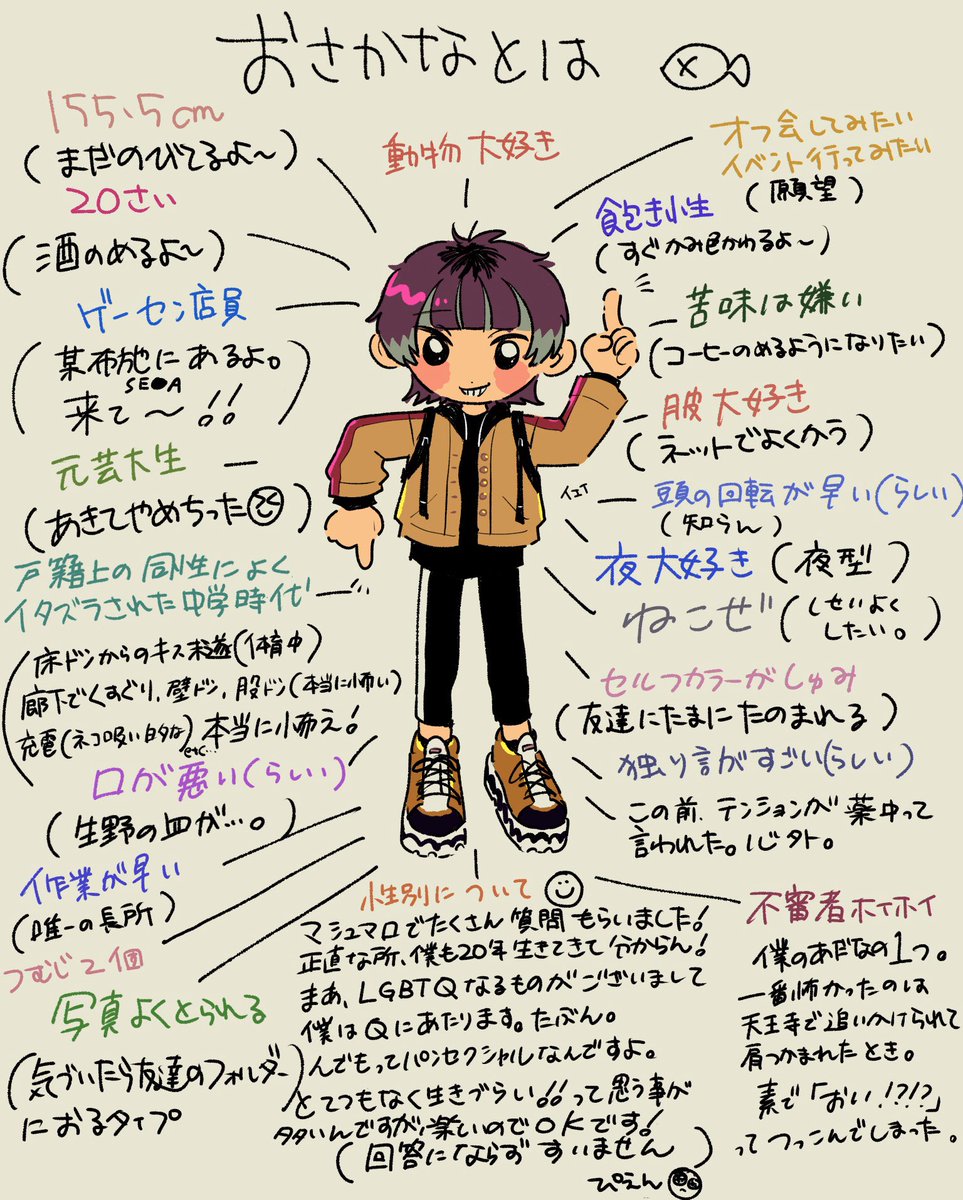 おさかなとは
155.5cm
(まだのびてるよ〜)
20さい
(酒のめるよ〜)
ゲーセン店員
(某布施にあるよ。
SE●A
来て〜!!)
元芸大生
(あきてやめちった)
戸籍上の同性によく
イタズラされた中学時代
(床ドンからのキス未遂(体育中)
廊下でくすぐり、壁ドン、股ドン(本当に怖い)
充電(ネコ吸い的な)etc… 本当に怖え!)
口が悪い(らしい)
(生野の血が…。)
作業が早い
(唯一の長所)
つむじ2個
写真よくとられる
(気づいたら友達のフォルダー
におるタイプ)
動物大好き
オフ会してみたい
イベント行ってみたい
(願望)
飽き性
(すぐかみ色かわるよ〜)
苦味は嫌い
(コーヒーのめるようになりたい)
服大好き
(ネットでよくかう)
イエイ
頭の回転が早い(らしい)
(知らん)
夜大好き(夜型)
ねこぜ(しせいよく
したい。)
セルフカラーがしゅみ
(友達にたまにたのまれる)
独り言がすごい(らしい)
この前、テンションが薬中って
言われた。心外。
性別について
マシュマロでたくさん質問もらいました!
正直な所、僕も20年生きてきて分からん!
まあ、LGBTQなるものがございまして
僕はQにあたります。たぶん。
んでもってパンセクシャルなんですよ。
とてつもなく生きづらい!!って思う事が
多いんですが、楽しいのでOKです!
(回答にならずすいません)
ぴえん
不審者ホイホイ
僕のあだなの1つ。
一番怖かったのは
天王寺で追いかけられて
肩つかまれたとき。
素で「おい!?!?」
ってつっこんでしまった。